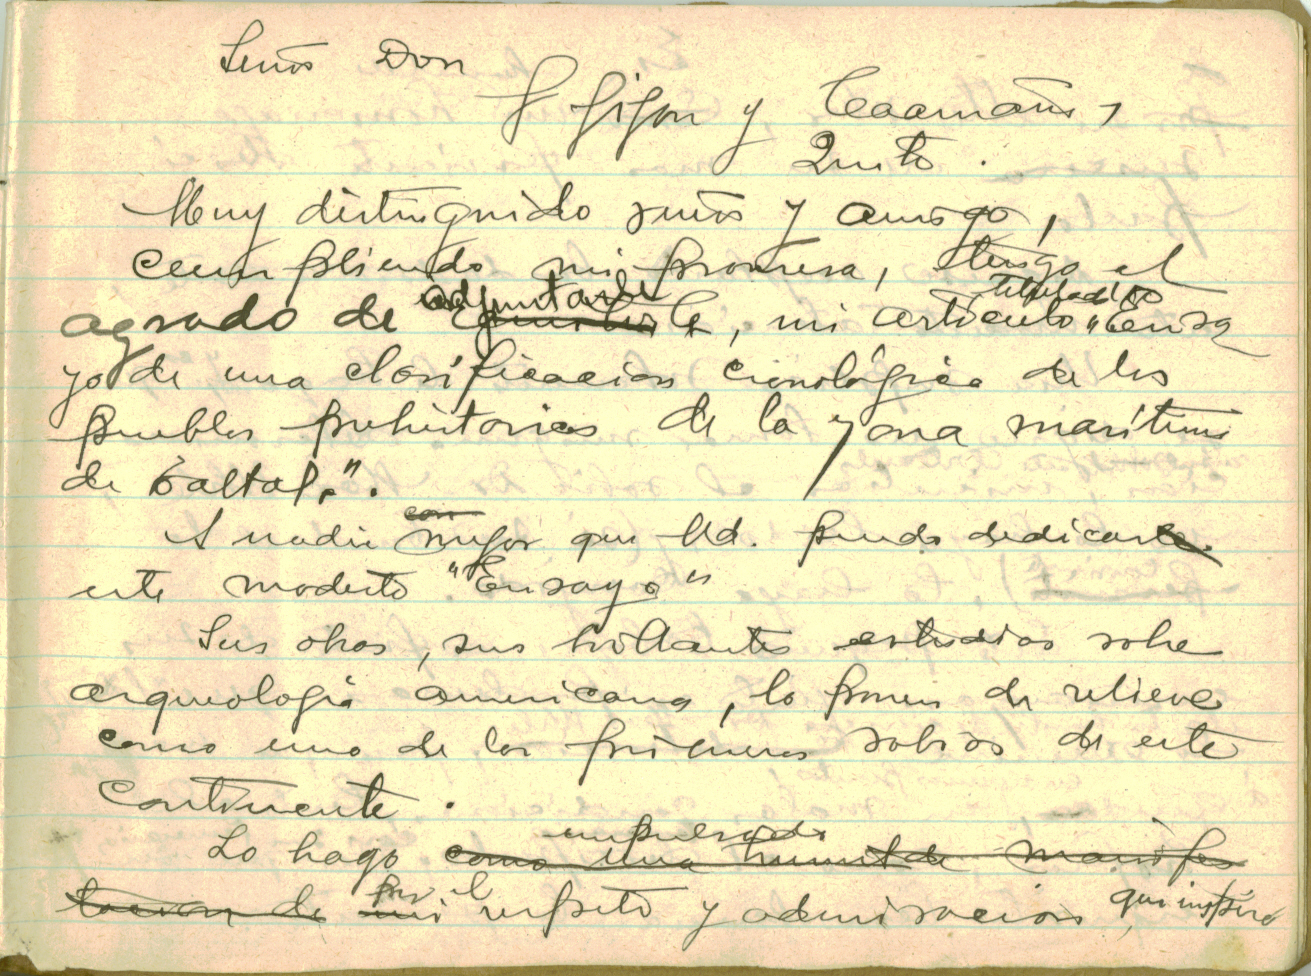 Señor Don
J Jijon y Caamaño,
Quito.
Muy distinguido señor y amigo,
cumpliendo mi promesa, tengo el
adjuntarle titulado
agrado de le, mi articulo "Ensa
yo de una clasificacion cronológica de los
pueblos prehistoricos de la zona marítima
de Taltal".
con
A nadie mejor que Ud. puedo dedicarle
este modesto "Ensayo"
Sus obras, sus brillantes estudios sobre
arqueologia americana, lo ponen de relieve
como uno de los primeros sabios de este
continente.
empujado
Lo hago como una humilde manifes
por el
tacion de mi respeto y admiracion, que inspira